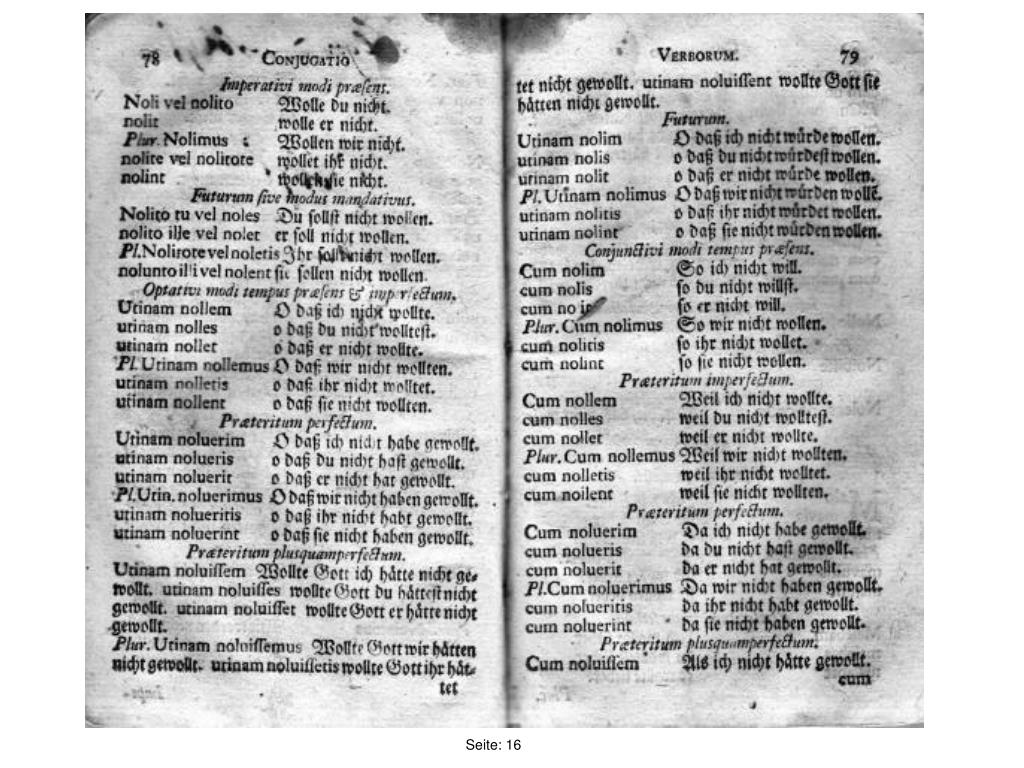 78 CONJUGATIO
Imperativi modi præsens.
Noli vel nolito Wolle du nicht.
nolit wolle er nicht.
Plur. Nolimus Wollen wir nicht.
nolite vel nolitote wollet ihr nicht.
nolint wollen sie nicht.
Futurum sive modus mandativus.
Nolito tu vel noles Du sollst nicht wollen.
nolito ille vel nolet er soll nicht wollen.
Pl. Nolitote vel noletis Ihr sollt nicht wollen.
nolunto illi vel nolent sie sollen nicht wollen.
Optativi modi tempus præsens & imperfectum.
Utinam nollem O daß ich nicht wollte.
utinam nolles o daß du nicht wolltest.
utinam nollet o daß er nicht wollte.
Pl. Utinam nollemus O daß wir nicht wollten.
utinam nolletis o daß ihr nicht wolltet.
utinam nollent o daß sie nicht wollten.
Præteritum perfectum.
Utinam noluerim O daß ich nicht habe gewollt.
utinam nolueris o daß du nicht hast gewollt.
utinam noluerit o daß er nicht hat gewollt.
Pl. Utin. noluerimus O daß wir nicht haben gewollt.
utinam nolueritis o daß ihr nicht habt gewollt.
utinam noluerint o daß sie nicht haben gewollt.
Præteritum plusquamperfectum.
Utinam noluissem Wollte Gott ich hätte nicht ge-
wollt. utinam noluisses wollte Gott du hättest nicht
gewollt. utinam noluisset wollte Gott er hätte nicht
gewollt.
Plur. Utinam noluissemus Wollte Gott wir hätten
nicht gewollt. utinam noluissetis wollte Gott ihr hät-
tet
VERBORUM. 79
tet nicht gewollt. utinam noluissent wollte Gott sie
hätten nicht gewollt.
Futurum.
Utinam nolim O daß ich nicht würde wollen.
utinam nolis o daß du nicht würdest wollen.
utinam nolit o daß er nicht würde wollen.
Pl. Utinam nolimus O daß wir nicht würden wollē.
utinam nolitis o daß ihr nicht würdet wollen.
utinam nolint o daß sie nicht würden wollen.
Conjunctivi modi tempus præsens.
Cum nolim So ich nicht will.
cum nolis so du nicht willst.
cum so er nicht will.
Plur. Cum nolimus So wir nicht wollen.
cum nolitis so ihr nicht wollet.
cum nolint so sie nicht wollen.
Præteritum imperfectum.
Cum nollem Weil ich nicht wollte.
cum nolles weil du nicht wolltest.
cum nollet weil er nicht wollte.
Plur. Cum nollemus Weil wir nicht wollten.
cum nolletis weil ihr nicht wolltet.
cum noilent weil sie nicht wollten.
Præteritum perfectum.
Cum noluerim Da ich nicht habe gewollt.
cum nolueris da du nicht hast gewollt.
cum noluerit da er nicht hat gewollt.
Pl. Cum noluerimus Da wir nicht haben gewollt.
cum nolueritis da ihr nicht habt gewollt.
cum noluerint da sie nicht haben gewollt.
Præteritum plusquamperfectum.
Cum noluissem Als ich nicht hätte gewollt.
cum
Seite: 16